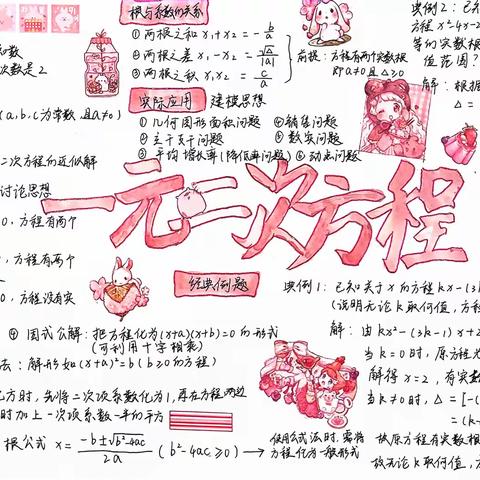 根与系数的关系
①两根之和 x₁+x₂=-b/a
②两根之差 x₁-x₂=√△/|a|
③两根之积 x₁x₂=c/a
前提:方程有两个实数根
即a≠0且△≥0
典例2:已知
方程x²-4x-2
等的实数根
值范围?
解:根据
△=
次数是2
(a,b,c为常数,且a≠0)
二次方程的近似解
讨论思想
0,方程有两个
0,方程有两个
0,方程没有实
实际应用 建模思想
①几何图形面积问题 ④销售问题
②立干支干问题 ⑤数字问题
③平均增长率(降低率问题) ⑥动点问题
一元二次方程
经典例题
典例1:已知关于x的方程kx-(3k
(说明无论k取何值,方程
解:由kx²-(3k-1)x+2
当k=0时,原方程为
解得x=2,有实数
当k≠0时,△=[-(
=(k-
故原方程有实数根
故无论k取何值,方
④因式分解:把方程化为(x+a)(x+b)=0的形式
(可利用十字相乘)
法:解形如(x+a)²=b(b≥0的方程)
配方时,先将二次项系数化为1,再在方程两边
时加上一次项系数一半的平方
根公式 x=-b±√b²-4ac/2a (b²-4ac≥0)→使用公式法时,需将
方程化为一般形式